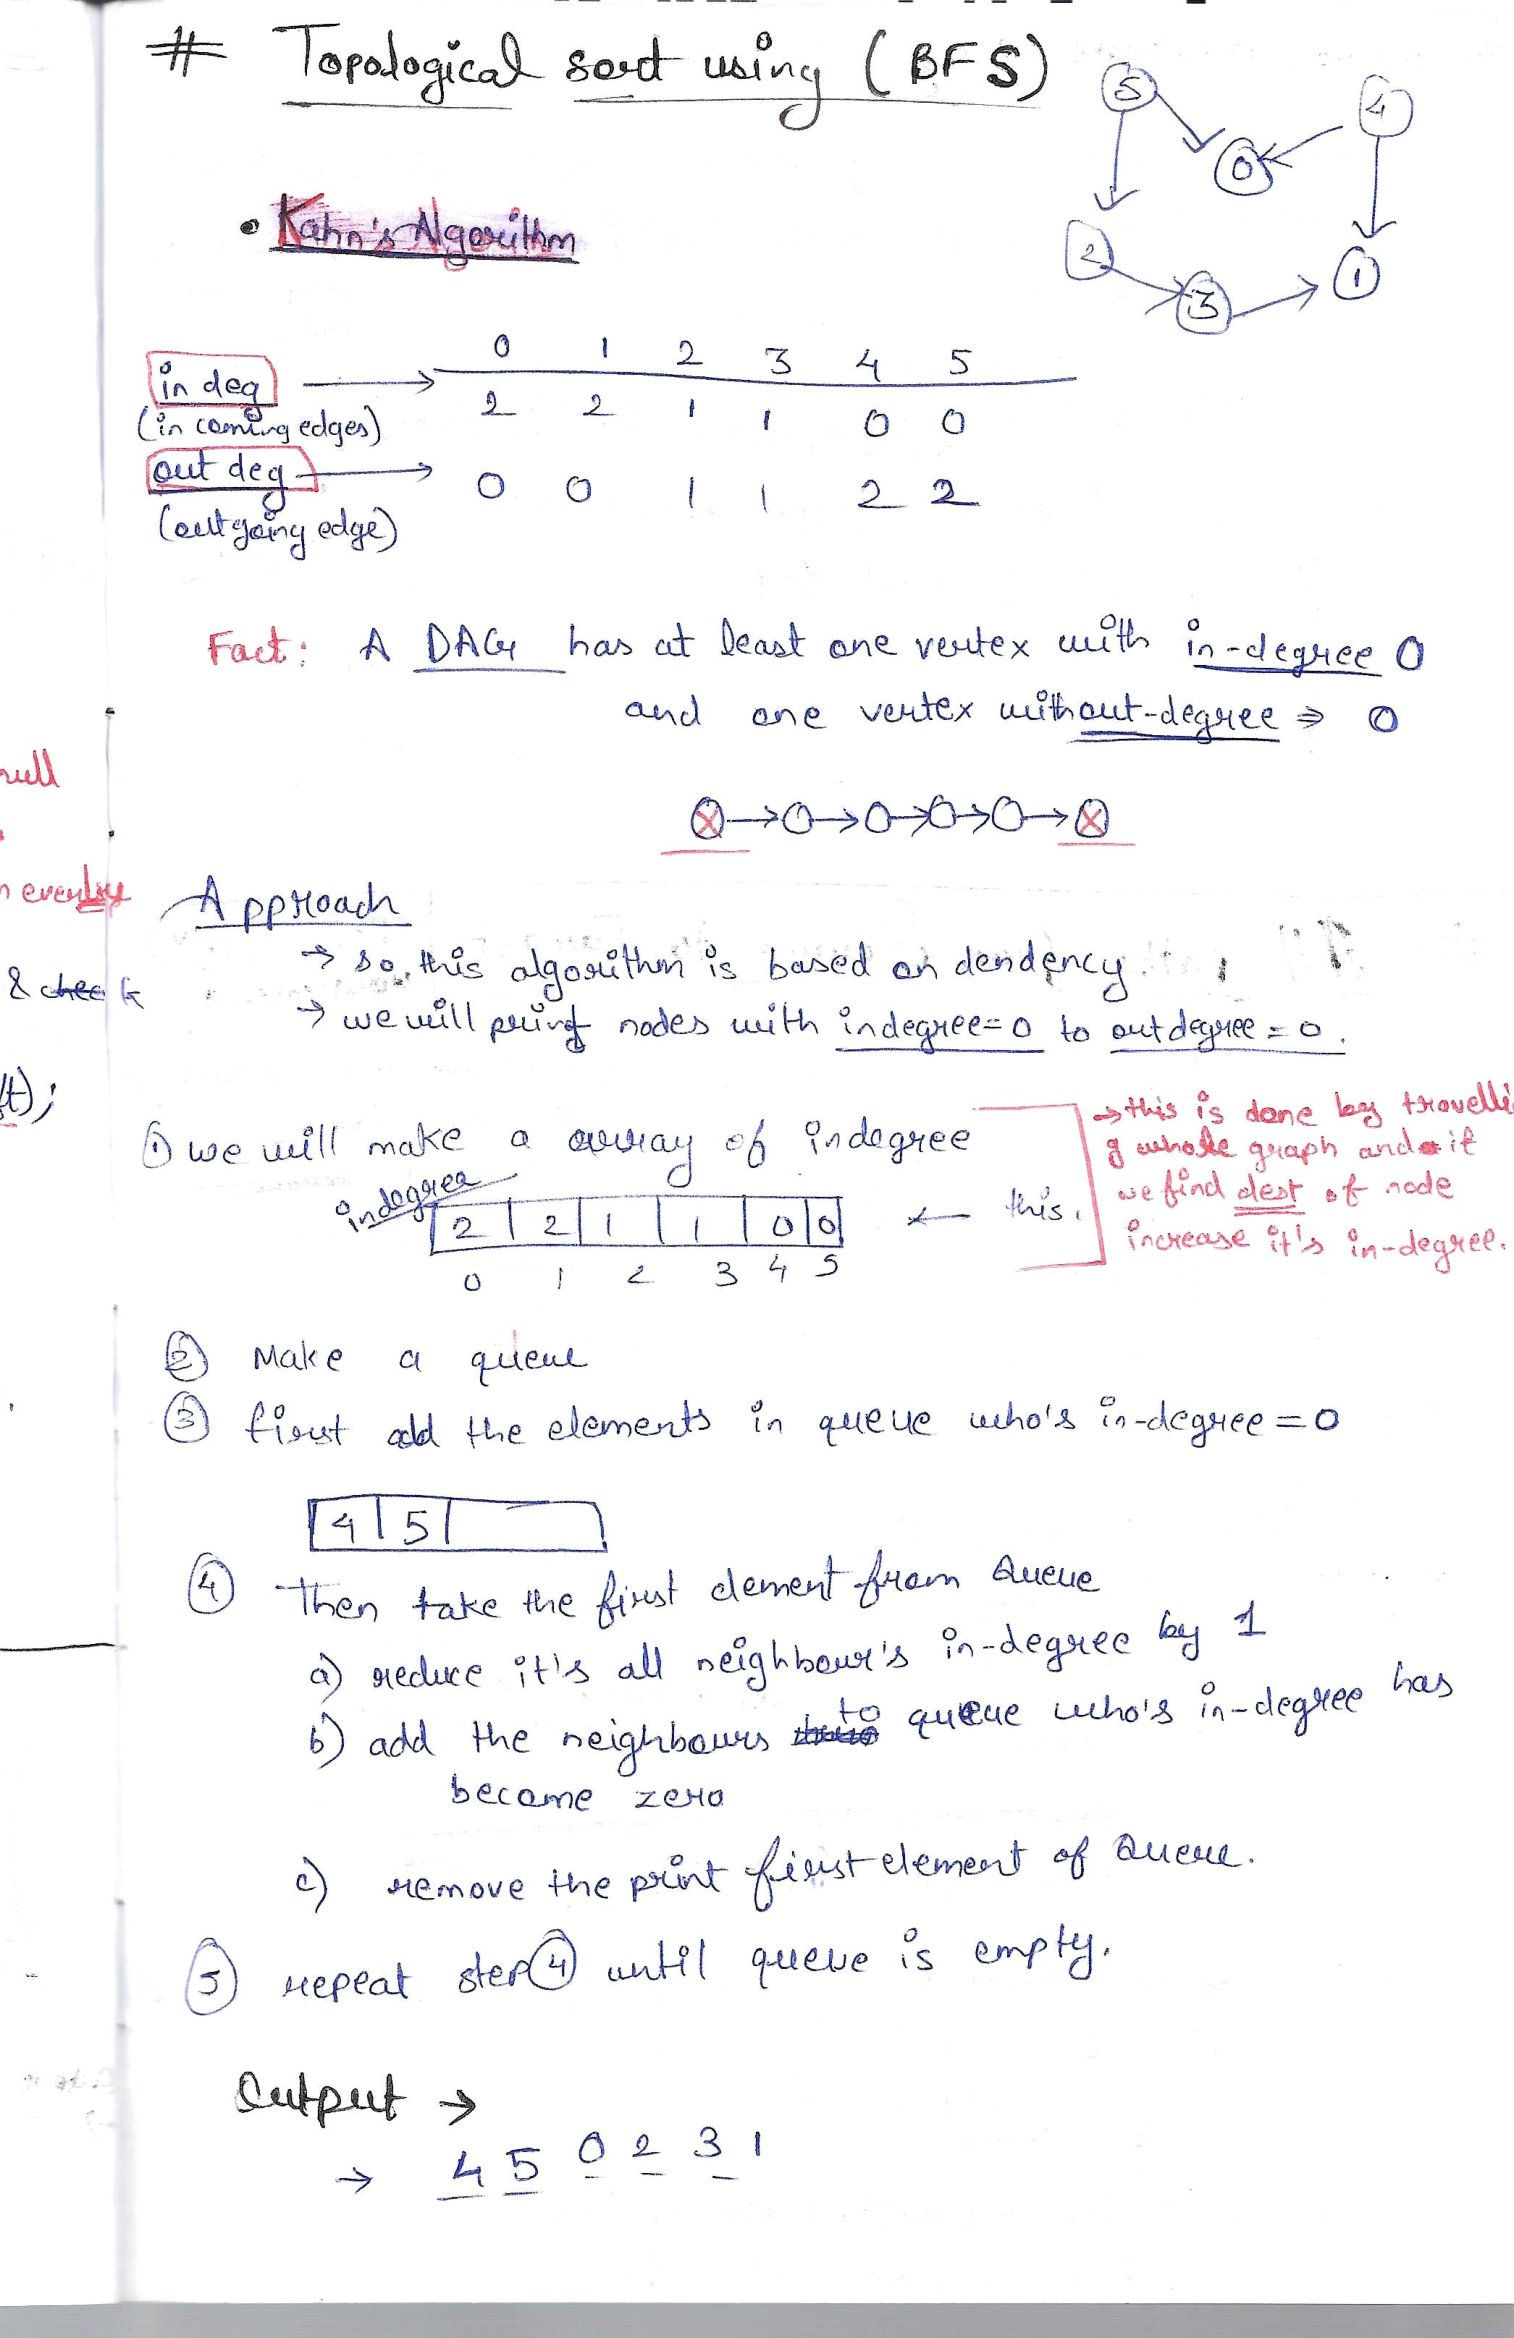 # Topological sort using (BFS)
5 4
0
2 3 1
• Kahn's Algorithm
0 1 2 3 4 5
in deg → 2 2 1 1 0 0
(in coming edges)
out deg → 0 0 1 1 2 2
(outgoing edge)
Fact: A DAG has at least one vertex with in-degree 0
and one vertex without-degree ⇒ 0
null
n every
& check
t);
Approach
→ so, this algorithm is based on dendency.
→ we will print nodes with indegree=0 to outdegree=0.
① we will make a array of indegree
→ this is done by travelli
g whole graph and if
we find dest of node
increase it's in-degree.
indegree
2 2 1 1 0 0 ← this.
0 1 2 3 4 5
② Make a queue
③ first add the elements in queue who's in-degree = 0
4 5
④ Then take the first element from Queue
a) reduce it's all neighbour's in-degree by 1
b) add the neighbours to queue who's in-degree has
become zero
c) remove the print first element of Queue.
⑤ repeat step ④ until queue is empty.
Output →
→ 4 5 0 2 3 1